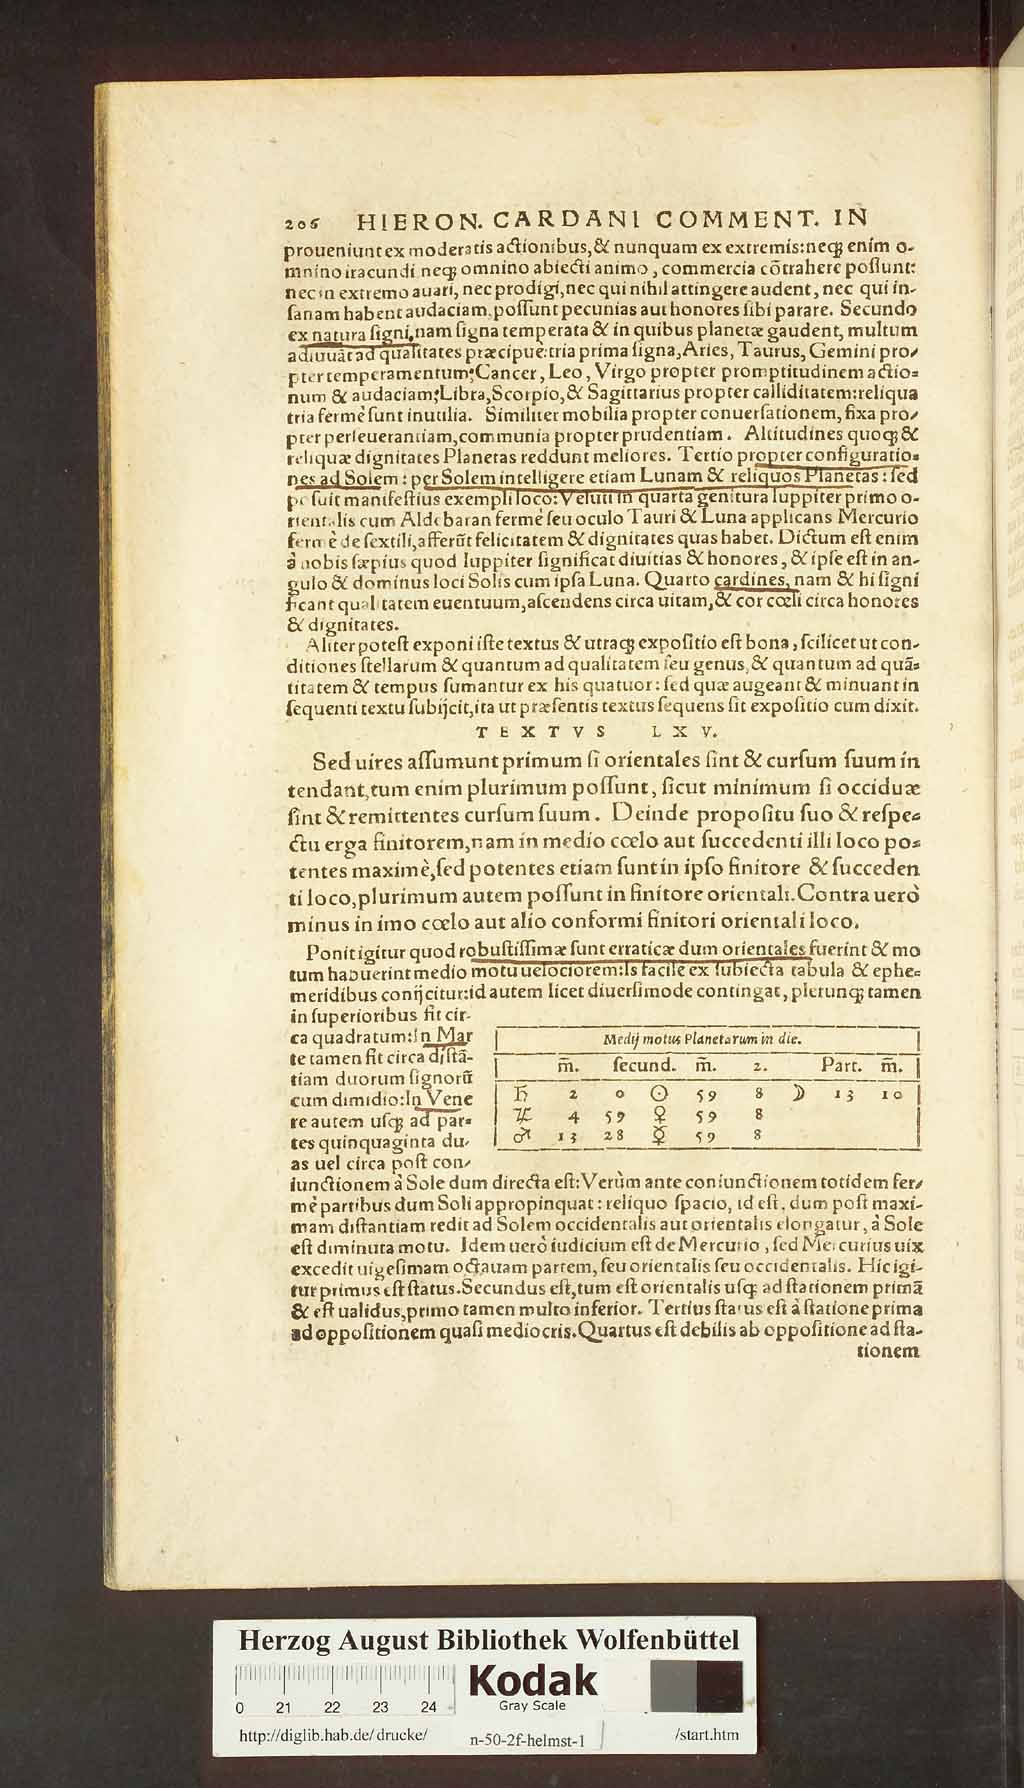 206 HIERON. CARDANI COMMENT. IN
proueniunt ex moderatis actionibus, & nunquam ex extremis: neq; enim o-
mnino iracundi neq; omnino abiecti animo, commercia cõtrahere possunt:
nec in extremo auari, nec prodigi, nec qui nihil attingere audent, nec qui in-
sanam habent audaciam, possunt pecunias aut honores sibi parare. Secundo
ex natura signi, nam signa temperata & in quibus planetæ gaudent, multum
adiuuãt ad qualitates præcipuè: tria prima signa, Aries, Taurus, Gemini pro-
pter temperamentum: Cancer, Leo, Virgo propter promptitudinem actio-
num & audaciam: Libra, Scorpio, & Sagittarius propter calliditatem: reliqua
tria fermè sunt inutilia. Similiter mobilia propter conuersationem, fixa pro-
pter perseuerantiam, communia propter prudentiam. Altitudines quoq; &
reliquæ dignitates Planetas reddunt meliores. Tertio propter configuratio-
nes ad Solem: per Solem intelligere etiam Lunam & reliquos Planetas: sed
posuit manifestius exempli loco: Veluti in quarta genitura Iuppiter primo o-
rientalis cum Aldebaran fermè seu oculo Tauri & Luna applicans Mercurio
fermè de sextili, afferũt felicitatem & dignitates quas habet. Dictum est enim
à nobis sæpius quod Iuppiter significat diuitias & honores, & ipse est in an-
gulo & dominus loci Solis cum ipsa Luna. Quarto cardines, nam & hi signi
ficant qualitatem euentuum, ascendens circa uitam, & cor cœli circa honores
& dignitates.
Aliter potest exponi iste textus & utraq; expositio est bona, scilicet ut con-
ditiones stellarum & quantum ad qualitatem seu genus, & quantum ad quã-
titatem & tempus sumantur ex his quatuor: sed quæ augeant & minuant in
sequenti textu subijcit, ita ut præsentis textus sequens sit expositio cum dixit.
TEXTVS LXV.
Sed uires assumunt primum si orientales sint & cursum suum in
tendant, tum enim plurimum possunt, sicut minimum si occiduæ
sint & remittentes cursum suum. Deinde propositu suo & respe-
ctu erga finitorem, nam in medio cœlo aut succedenti illi loco po-
tentes maximè, sed potentes etiam sunt in ipso finitore & succeden
ti loco, plurimum autem possunt in finitore orientali. Contra uerò
minus in imo cœlo aut alio conformi finitori orientali loco.
Ponit igitur quod robustissimæ sunt erraticæ dum orientales fuerint & mo
tum habuerint medio motu uelociorem: Is facile ex subiecta tabula & ephe-
meridibus conijcitur: id autem licet diuersimode contingat, plerunq; tamen
in superioribus fit cir-
ca quadratum: In Mar
te tamen fit circa distã-
tiam duorum signorũ
cum dimidio: In Vene
re autem usq; ad par-
tes quinquaginta du-
as uel circa post con-
Medij motus Planetarum in die.
m̃. secund. m̃. 2. Part. m̃.
♄ 2 0 ☉ 59 8 ☽ 13 10
♃ 4 59 ♀ 59 8
♂ 13 28 ☿ 59 8
iunctionem à Sole dum directa est: Verùm ante coniunctionem totidem fer-
mè partibus dum Soli appropinquat: reliquo spacio, id est, dum post maxi-
mam distantiam redit ad Solem occidentalis aut orientalis elongatur, à Sole
est diminuta motu. Idem uerò iudicium est de Mercurio, sed Mercurius uix
excedit uigesimam octauam partem, seu orientalis seu occidentalis. Hic igi-
tur primus est status. Secundus est, tum est orientalis usq; ad stationem primã
& est ualidus, primo tamen multo inferior. Tertius status est à statione prima
ad oppositionem quasi mediocris. Quartus est debilis ab oppositione ad sta-
tionem
Herzog August Bibliothek Wolfenbüttel
0 21 22 23 24
Kodak
Gray Scale
http://diglib.hab.de/drucke/ n-50-2f-helmst-1 /start.htm